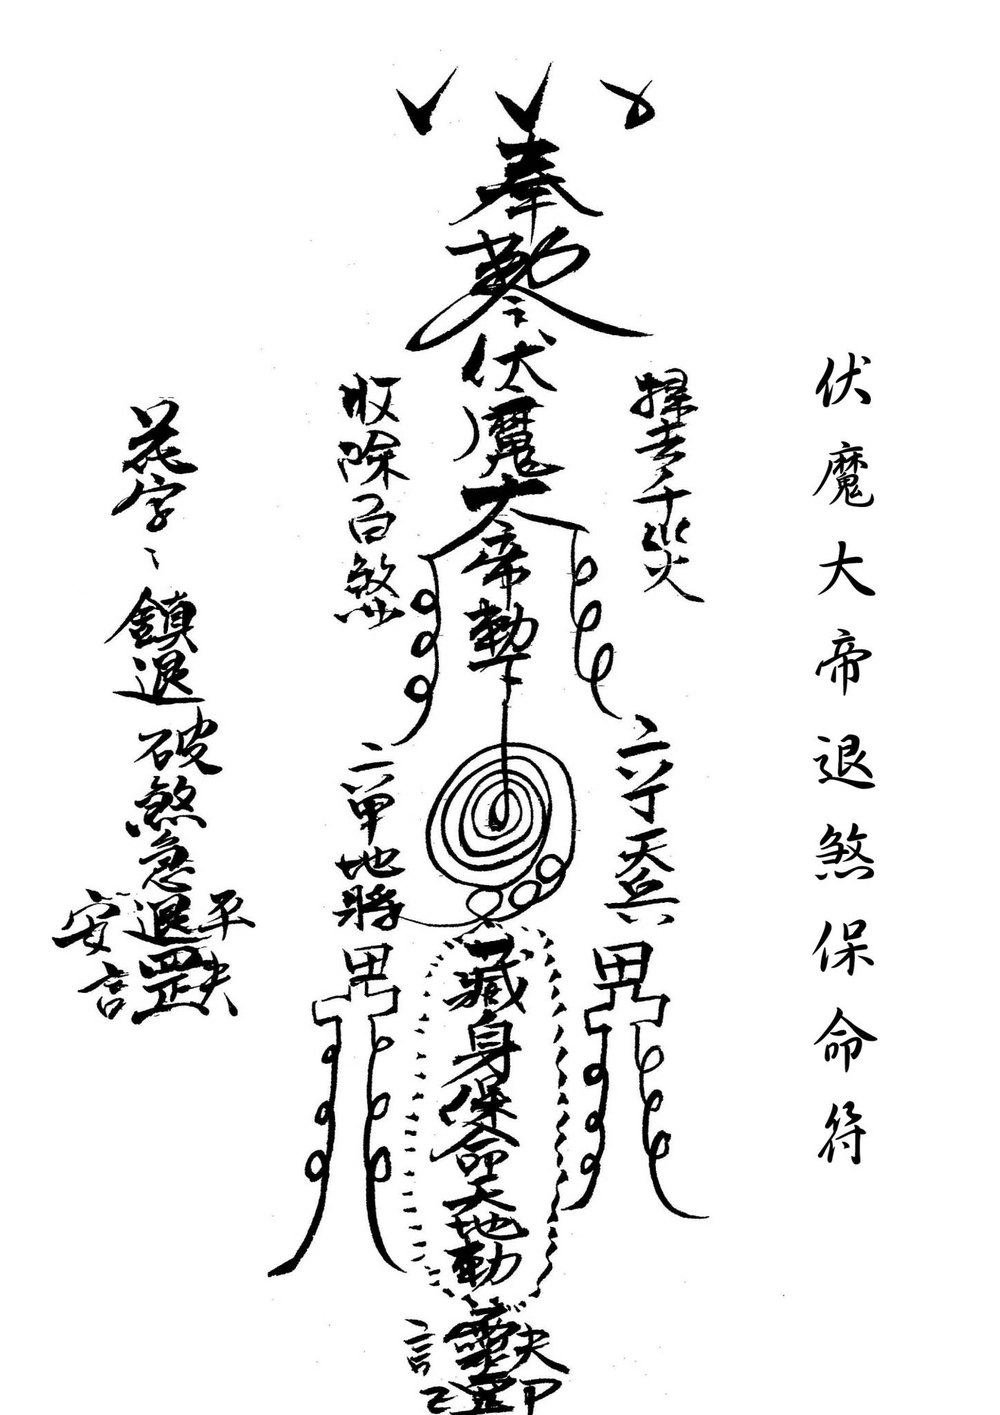 伏魔大帝退煞保命符
奉勅令伏魔大帝勅下
掃去千災
收除百煞
六丁天兵
六甲地將
藏身保命天地動
花字、鎮退破煞急退罡
平安